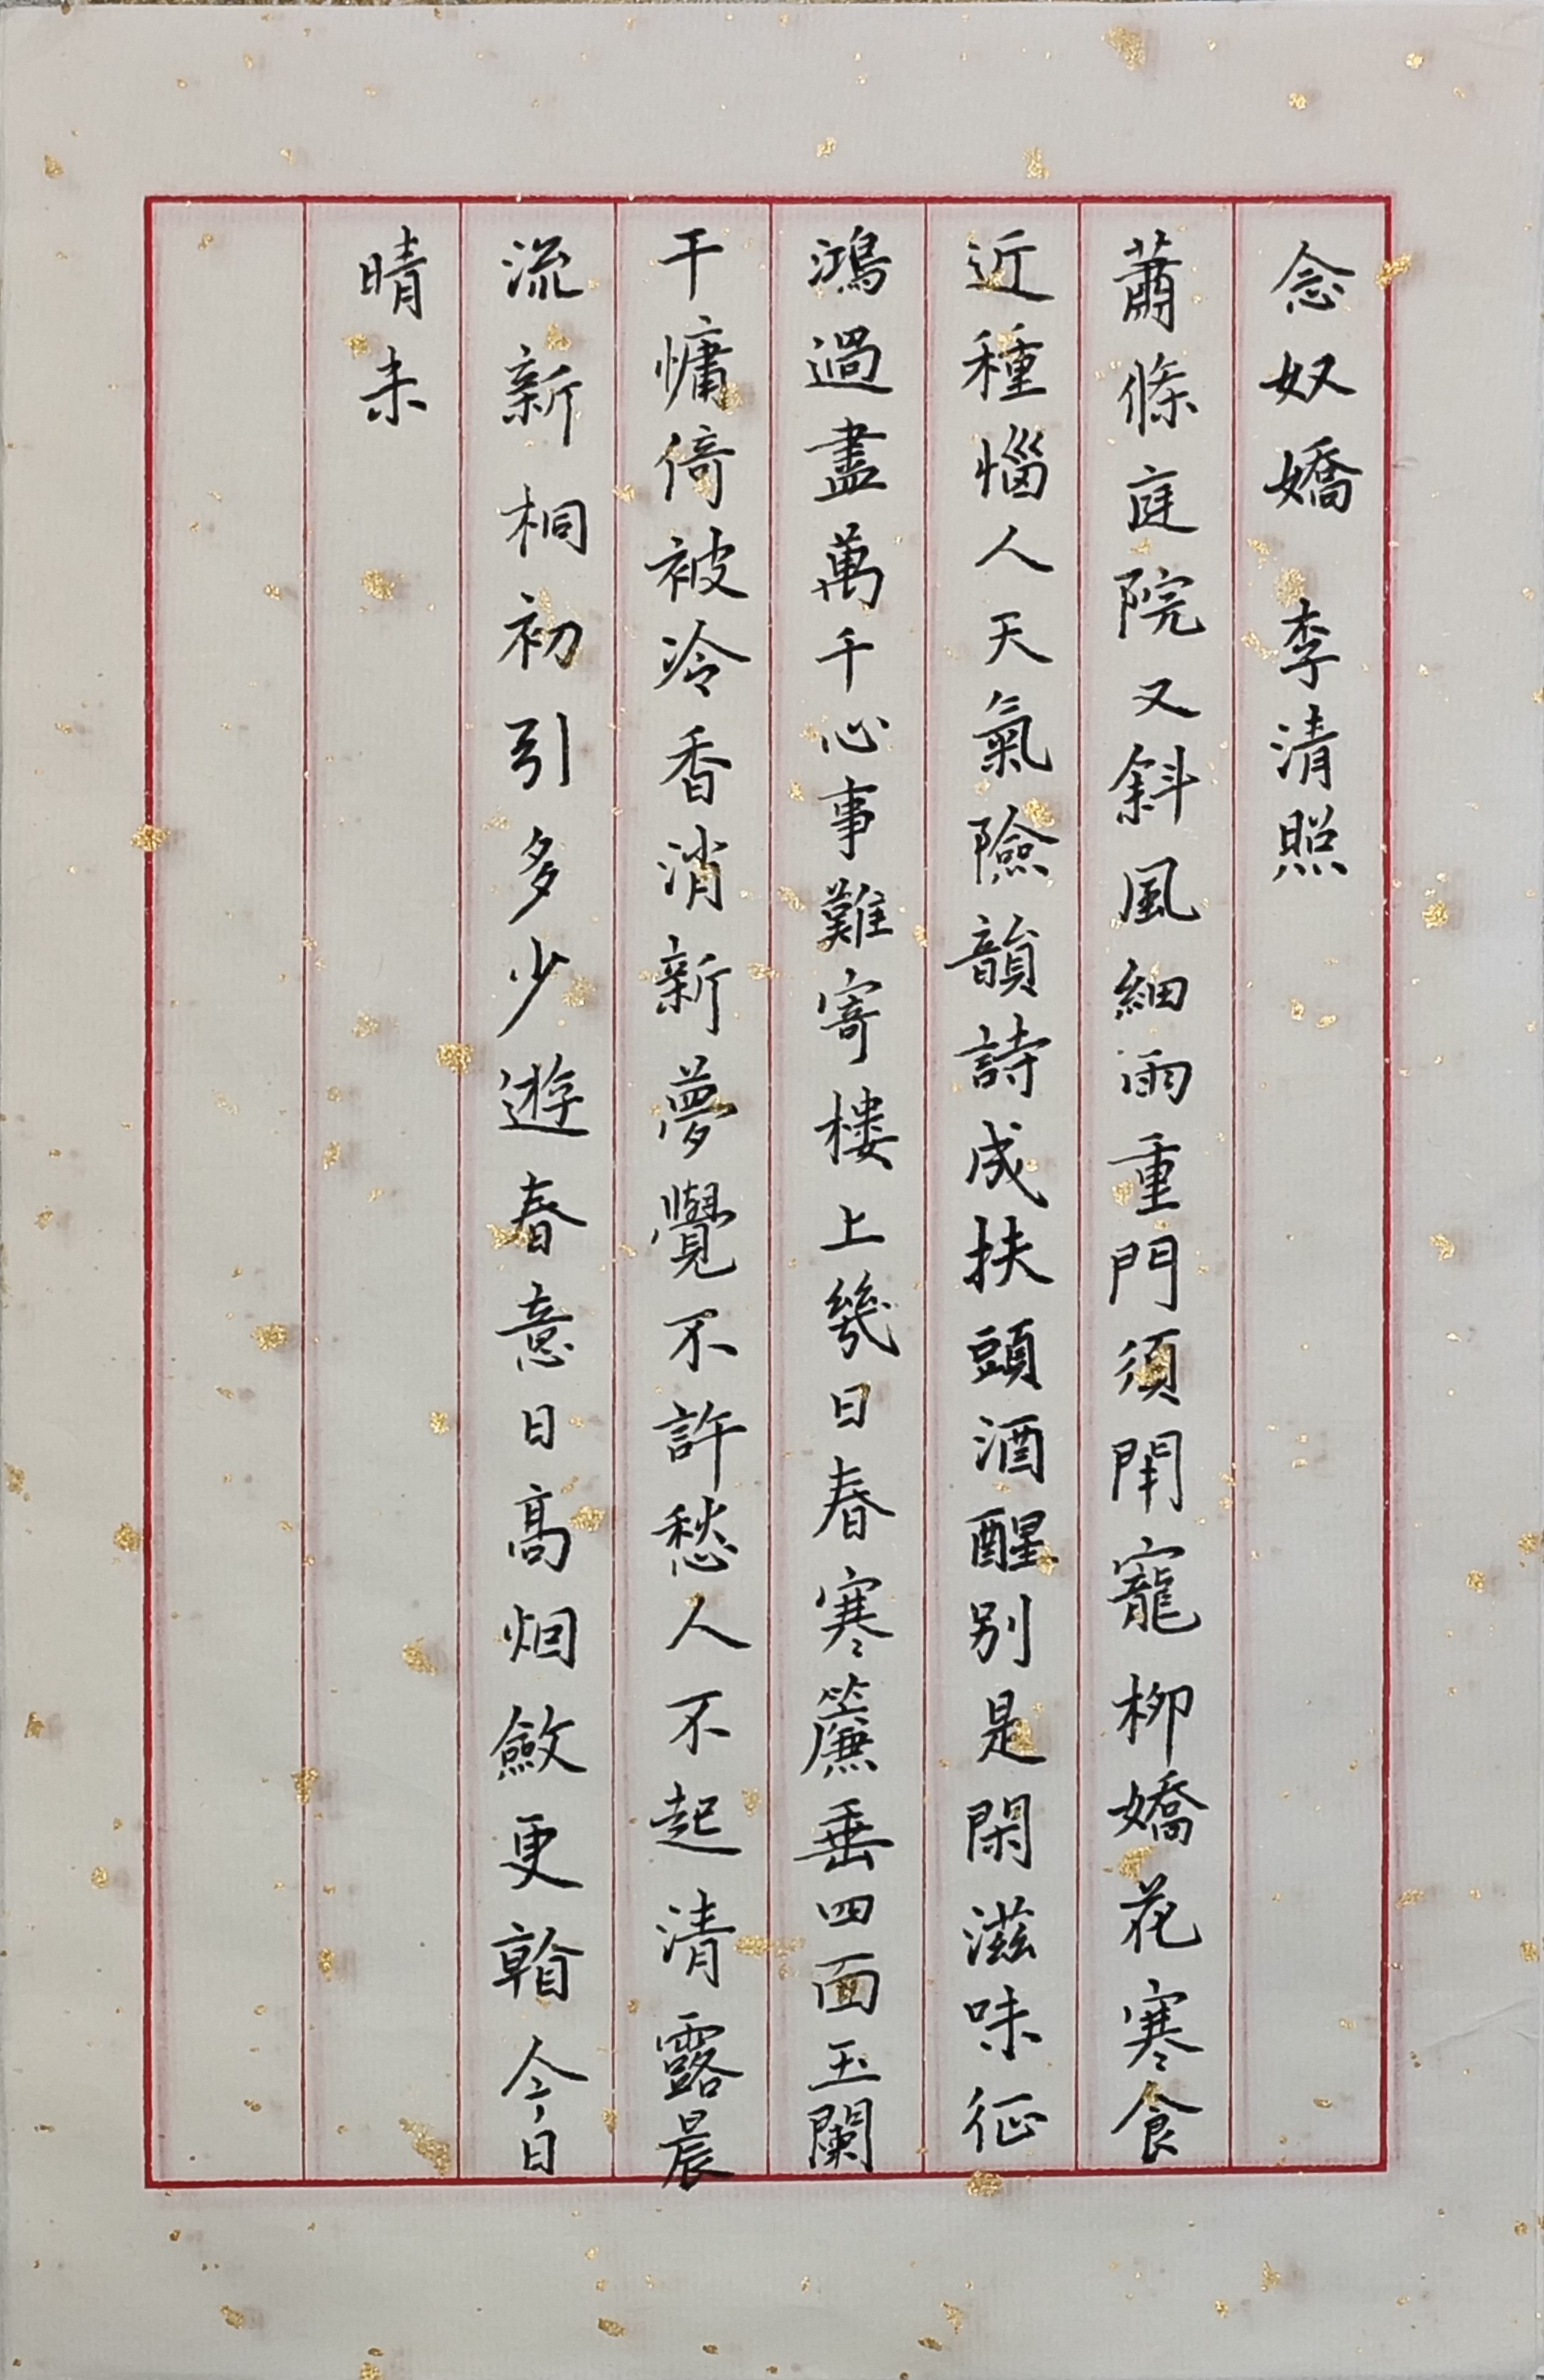 念奴嬌 李清照
蕭條庭院又斜風細雨重門須閈寵柳嬌花寒食
近種惱人天氣險韻詩成扶頭酒醒别是閑滋味征
鴻過盡萬千心事難寄樓上幾日春寒簾垂四面玉闌
干慵倚被冷香消新夢覺不許愁人不起清露晨
流新桐初引多少遊春意日高烟斂更㫋今日
晴未